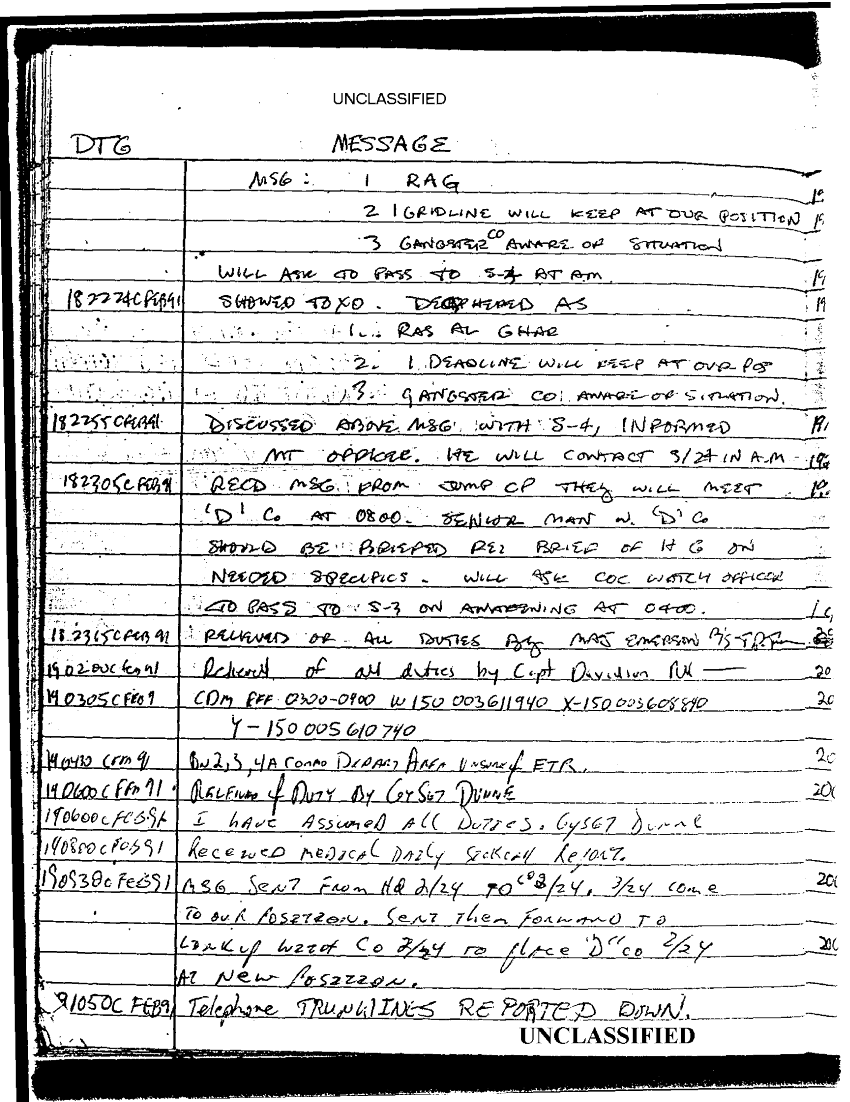 UNCLASSIFIED
DTG MESSAGE
MSG: 1 RAG
2 1 GRIDLINE WILL KEEP AT OUR POSITION
3 GANGSTER CO AWARE OF SITUATION
WILL ASK TO PASS TO S-4 AT AM.
182224C FEB 91 SHOWED TO XO. DECIPHERED AS
1. RAS AL GHAR
2. 1 DEADLINE WILL KEEP AT OUR POS
3. GANGSTER CO. AWARE OF SITUATION.
182255C FEB 91 DISCUSSED ABOVE MSG WITH S-4, INFORMED
MT OFFICER. HE WILL CONTACT 3/24 IN A.M
182305C FEB 91 RECD MSG FROM JUMP CP THEY WILL MEET
'D' Co AT 0800. SENIOR MAN W. 'D' Co
SHOULD BE BRIEFED RE: BRIEF OF H G ON
NEEDED SPECIFICS. WILL ASK COC WATCH OFFICER
TO PASS TO S-3 ON AWAKENING AT 0400.
RELIEVED OF ALL DUTIES BY MAJ EMERSON
Relieved of all duties by Capt Davidson
190305C FEB 9 CDM EFF 0300-0900 W 150 003611940 X-150 003608840
Y-150 005610740
DEPART AREA UNSURE of ETR.
190600C FEB 91 RELIEVED of DUTY By GySGT DUNNE
190600C FEB 91 I HAVE ASSUMED ALL DUTIES. GySGT DUNNE
190800C FEB 91 RECEIVED MEDICAL DAILY SICKCALL REPORT.
190930C FEB 91 MSG SENT FROM HQ 2/24 TO CO 3/24. 3/24 COME
TO OUR POSITION. SENT THEM FORWARD TO
LINKUP WITH CO 2/24 TO PLACE "D" CO 2/24
AT NEW POSITION.
91050C FEB 9 Telephone TRUNKLINES REPORTED DOWN.
UNCLASSIFIED